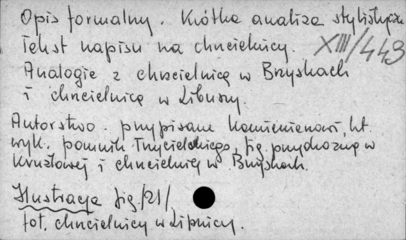 Opis formalny. Krótka analiza stylistyczna
Tekst napisu na chrzcielnicy. XIII/443
Analogie z chrzcielnicą w Bzyskach
i chrzcielnicą w Libuszy.
Autorstwo. przypisane Kamieniarzowi, kt.
wyk. pomnik Trzycieskiego, fig. przydrożną w
Krużlowej i chrzcielnicę w Bzyskach.
Ilustracja fig. /21/,
fot. chrzcielnicy w Lipnicy.